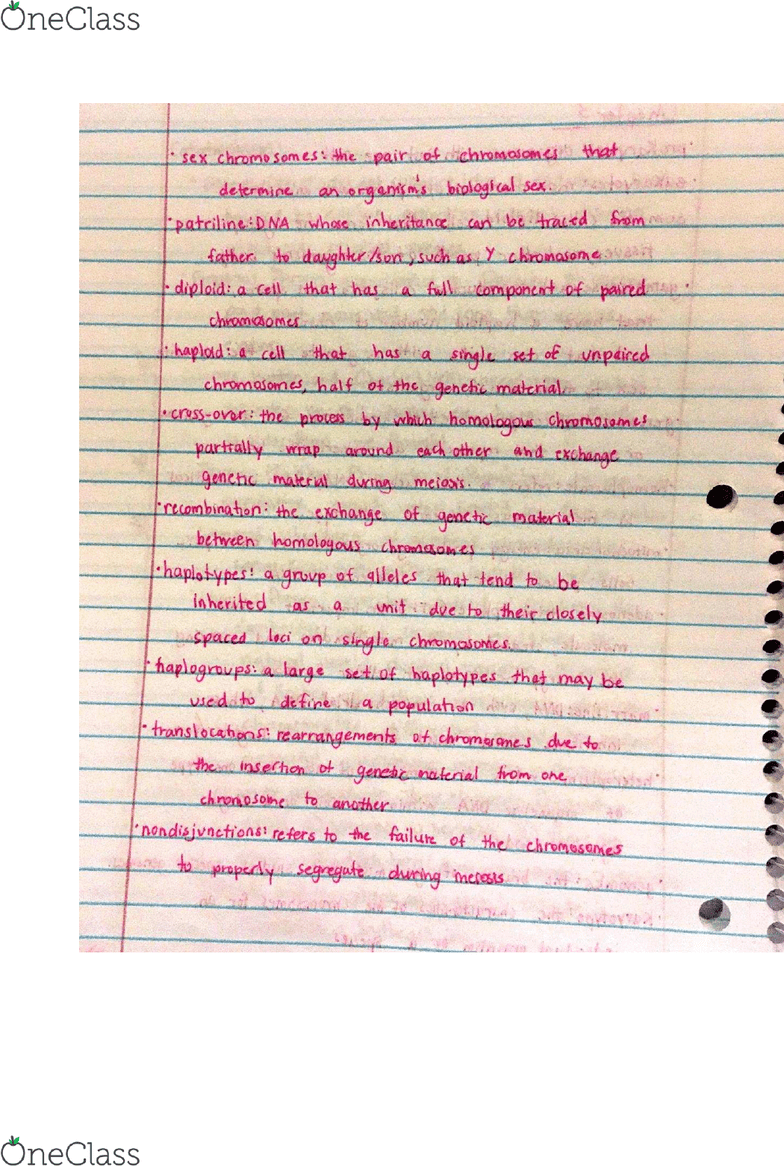 OneClass
· sex chromosomes: the pair of chromosomes that
determine an organism's biological sex.
· patriline: DNA whose inheritance can be traced from
father to daughter/son, such as Y chromosome
· diploid: a cell that has a full component of paired
chromosomes
· haploid: a cell that has a single set of unpaired
chromosomes, half of the genetic material
· cross-over: the process by which homologous chromosomes
partially wrap around each other and exchange
genetic material during meiosis.
· recombination: the exchange of genetic material
between homologous chromosomes
· haplotypes: a group of alleles that tend to be
inherited as a unit due to their closely
spaced loci on single chromosomes.
· haplogroups: a large set of haplotypes that may be
used to define a population
· translocations: rearrangements of chromosomes due to
the insertion of genetic material from one
chromosome to another
· nondisjunctions: refers to the failure of the chromosomes
to properly segregate during meiosis
OneClass